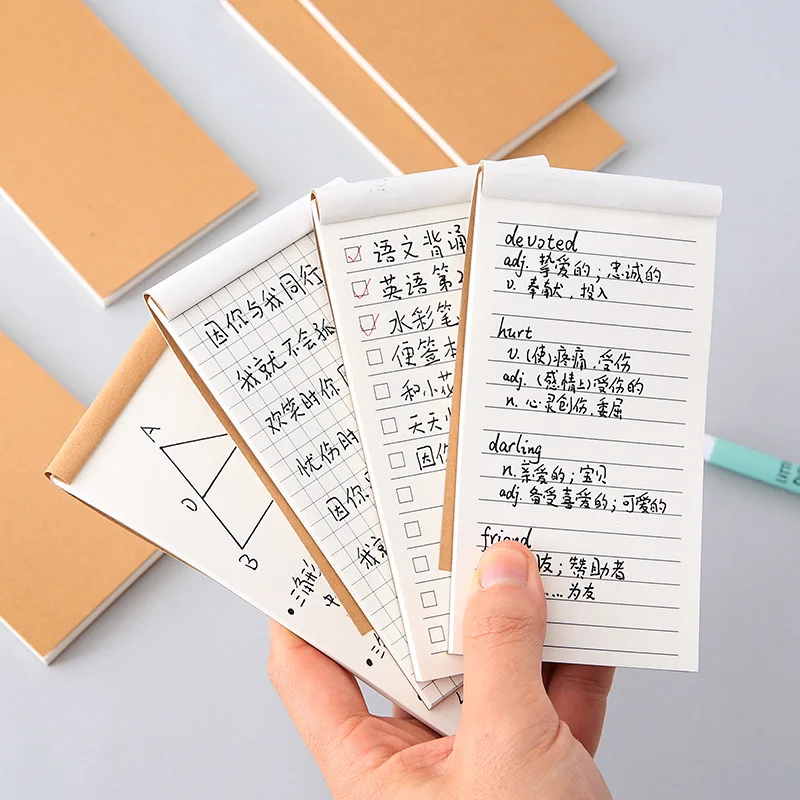 A
D
B
三角形
中
因你与我同行
我就不会孤
欢笑时你
忧伤时
因你
我就
语文背诵
英语第
水彩笔
便签本
和小花
天天
因你
devoted
adj. 挚爱的；忠诚的
v. 奉献，投入
hurt
v. (使)疼痛，受伤
adj. (感情上)受伤的
n. 心灵创伤，委屈
darling
n. 亲爱的；宝贝
adj. 备受喜爱的；可爱的
friend
友；赞助者
……为友